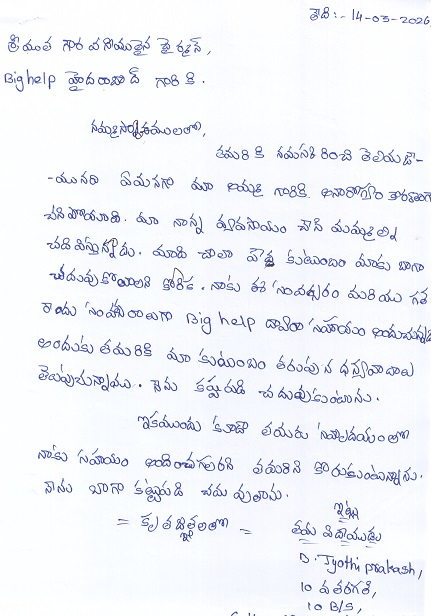 తేది:- 14-03-2026,
శ్రీయుత గౌరవనీయులైన చైర్మన్,
Big help హైదరాబాద్ గారికి.
నమస్కారములతో,
తమరికి నమస్కరించి తెలియజే-
-యునది ఏమనగా మా అమ్మ గారికి అనారోగ్యం కారణంగా
చనిపోయారు. మా నాన్న వ్యవసాయం చేసి మమ్మల్ని
చదివిస్తున్నాడు. మాది చాలా పేద కుటుంబం మాకు బాగా
చదువుకోవాలని కోరిక. నాకు ఈ సంవత్సరం మరియు గత
రెండు సంవత్సరాలుగా Big help ద్వారా సహాయం అందుచున్నది
అందుకు తమరికి మా కుటుంబం తరుపున ధన్యవాదాలు
తెలుపుచున్నాము. నేను కష్టపడి చదువుకుంటాను.
ఇకముందు కూడా తమరు సహృదయంతో
నాకు సహాయం అందించగలరని తమరిని కోరుకుంటున్నాను.
నేను బాగా కష్టపడి చదువుతాను.
ఇట్లు
= కృతజ్ఞతలతో = తమ విధేయుడు
D. Jyothi prakash,
10 వ తరగతి,
10 B/S,